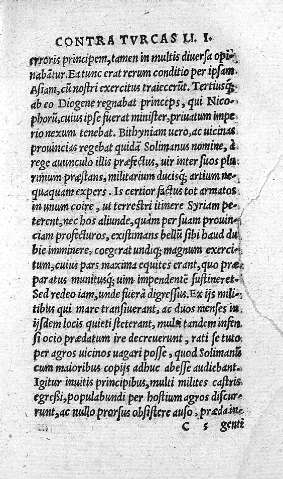 CONTRA TVRCAS LI. I.
erroris principem, tamen in multis diuersa opi¬
nabãtur. Ea tunc erat rerum conditio per ipsam
Asiam, cũ nostri exercitus traiecerũt. Tertiusq́;
ab eo Diogene regnabat princeps, qui Nico¬
phorũ, cuius ipse fuerat minister, priuatum impe
rio nexum tenebat. Bithyniam uero, ac uicinas
prouincias regebat quidã Solimanus nomine, à
rege auunculo illis præfectus, uir inter suos plu
rimum præstans, militarium ducisq́; artium ne¬
quaquam expers. Is certior factus tot armatos
in unum coire, ut terrestri itinere Syriam pe¬
terent, nec hos aliunde, quàm per suam prouin¬
ciam profecturos, existimans bellũ sibi haud du
bie imminere, coegerat undiq; magnum exerci¬
tum, cuius pars maxima equites erant, quo præ
paratus munitusq́; uim impendentẽ sustineret.
Sed redeo iam, unde fuerã digressus. Ex ijs mili¬
tibus qui mare transiuerant, ac duos menses in
ijsdem locis quieti steterant, multi tandem infen
si ocio prædatum ire decreuerunt, rati se tuto
per agros uicinos uagari posse, quod Solimanũ
cum maioribus copijs adhuc abesse audiebant.
Igitur inuitis principibus, multi milites castris
egressi, populabundi per hostium agros discur¬
runt, ac nullo prorsus obsistere auso, præda in¬
C 5 genti